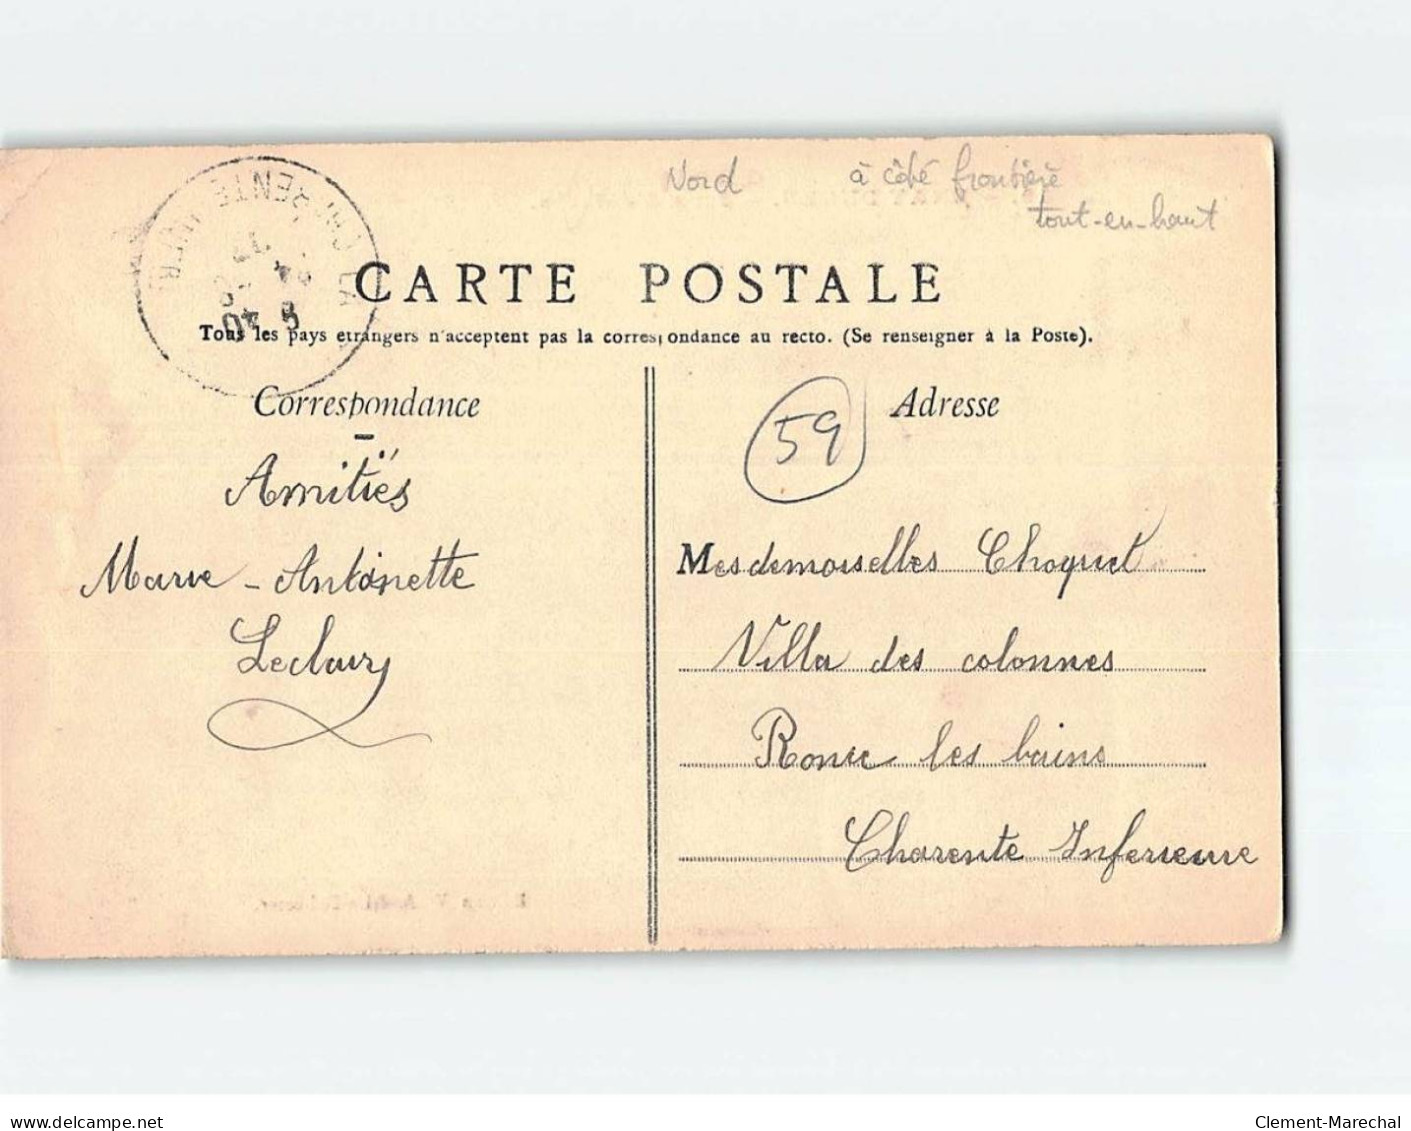 Nord à côté frontière
tout-en-haut
LA CHARENTE INFRE
8 40
CARTE POSTALE
Tous les pays etrangers n'acceptent pas la correspondance au recto. (Se renseigner à la Poste).
Correspondance
Adresse
59
Amitiés
Marie-Antoinette
Leclair
Mesdemoiselles Choquet
Villa des colonnes
Ronce les bains
Charente Inferieure
delcampe.net
Clement-Marechal